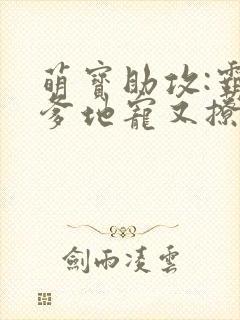 萌寶助攻:霸
爹地寵又撩
劍雨凌雲